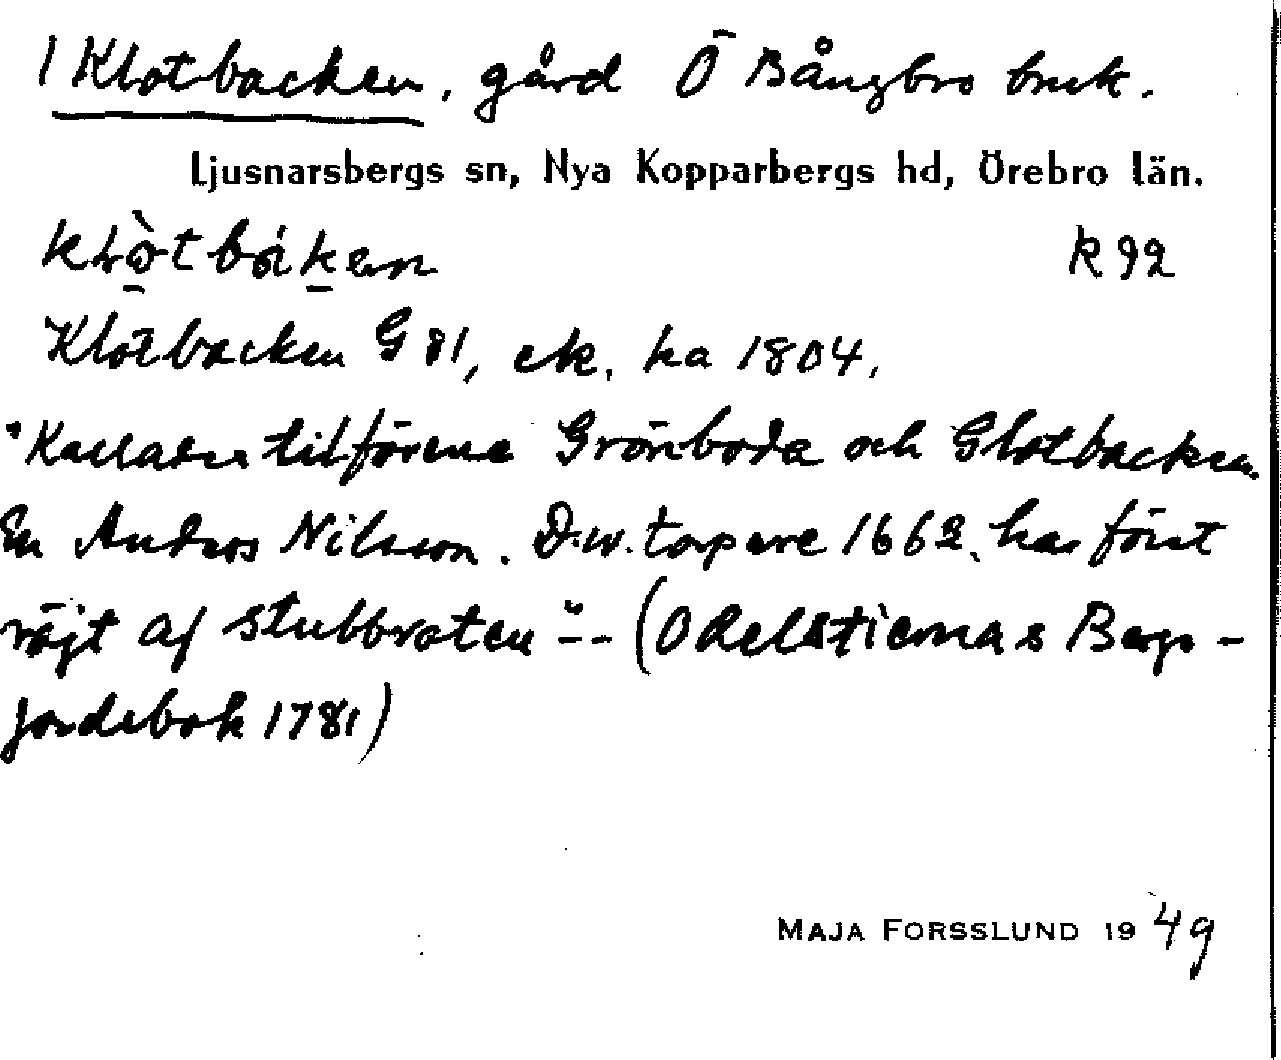 1 Klotbacken, gård Ö Bångbro bruk.
Ljusnarsbergs sn, Nya Kopparbergs hd, Örebro län.
klò̱tbáḵen R 92
Klotbacken G 81, ek. ka 1804.
"Kallades tilförene Grönboda och Glotbacken.
En Anders Nilsson. D.w. torpare 1662. har först
röjt af stubbroten"-- (Odelstiernas Bergs-
jordebok 1781)
MAJA FORSSLUND 1949